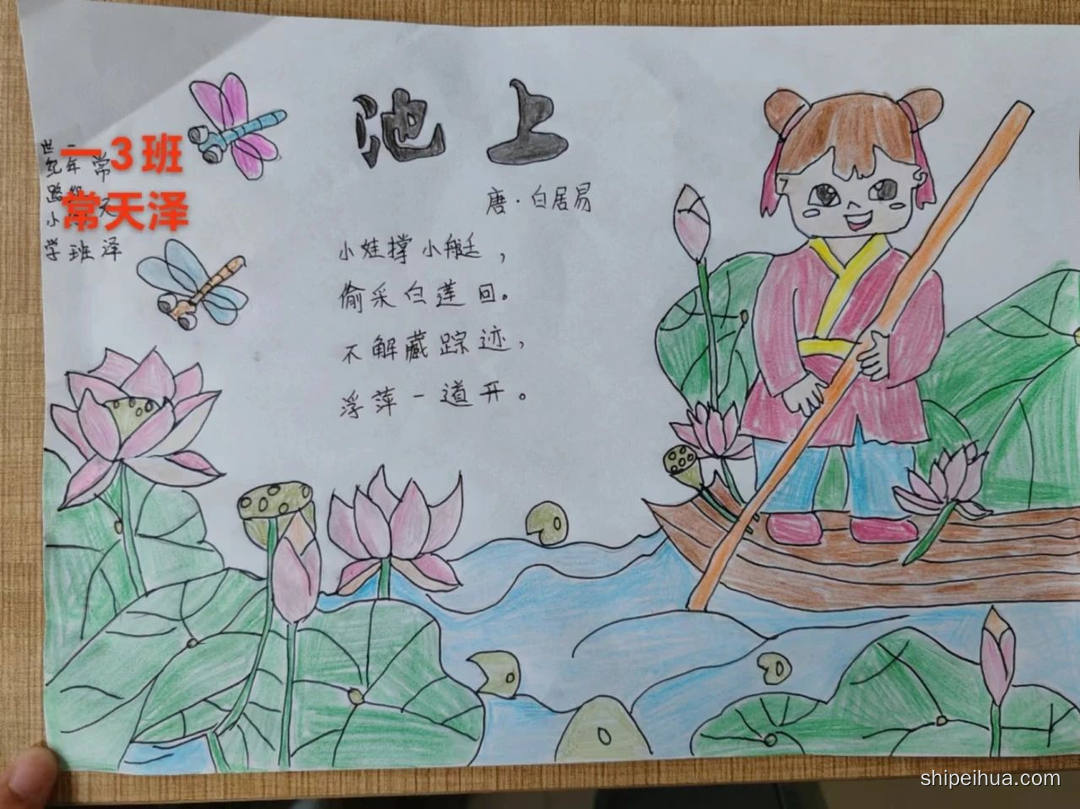 池上
唐·白居易
小娃撑小艇，
偷采白莲回。
不解藏踪迹，
浮萍一道开。
一3班
常天泽
世纪路小学
班
常
泽
shipeihua.com